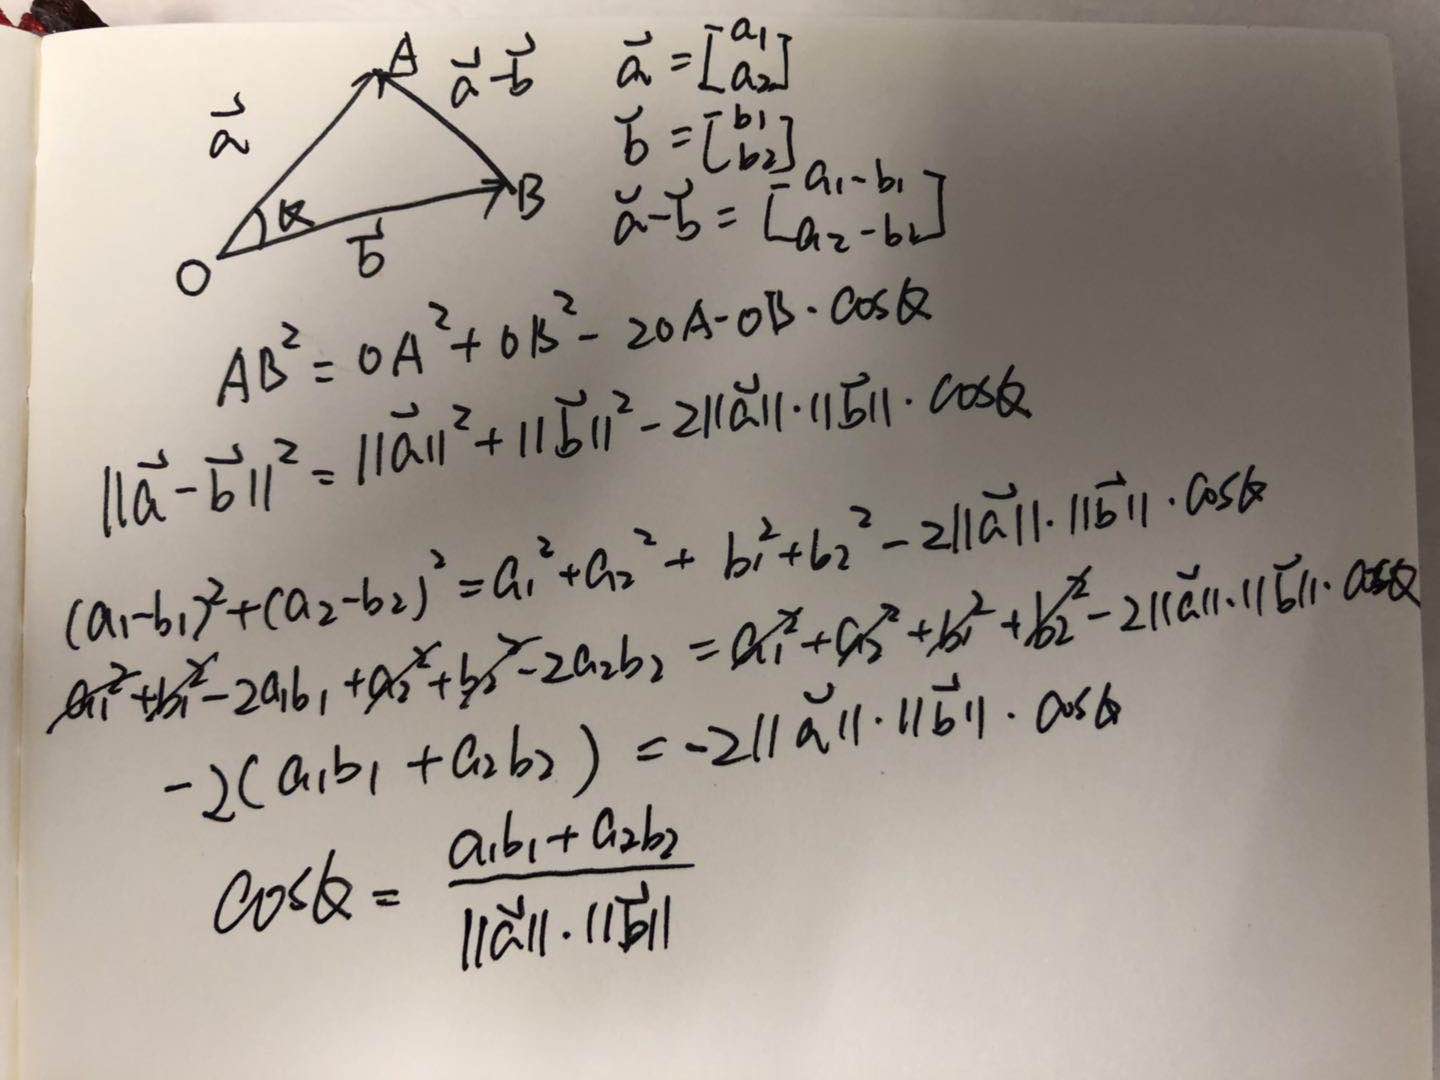 A
a⃗ - b⃗
a⃗
α
B
b⃗
O
a⃗ = [a₁ a₂]
b⃗ = [b₁ b₂]
a⃗ - b⃗ = [a₁-b₁ a₂-b₂]
AB² = OA² + OB² - 2OA-OB·cosα
||a⃗ - b⃗||² = ||a⃗||² + ||b⃗||² - 2||a⃗||·||b⃗||·cosα
(a₁-b₁)² + (a₂-b₂)² = a₁² + a₂² + b₁² + b₂² - 2||a⃗||·||b⃗||·cosα
a₁² + b₁² - 2a₁b₁ + a₂² + b₂² - 2a₂b₂ = a₁² + a₂² + b₁² + b₂² - 2||a⃗||·||b⃗||·cosα
-2(a₁b₁ + a₂b₂) = -2||a⃗||·||b⃗||·cosα
cosα = (a₁b₁ + a₂b₂) / (||a⃗||·||b⃗||)